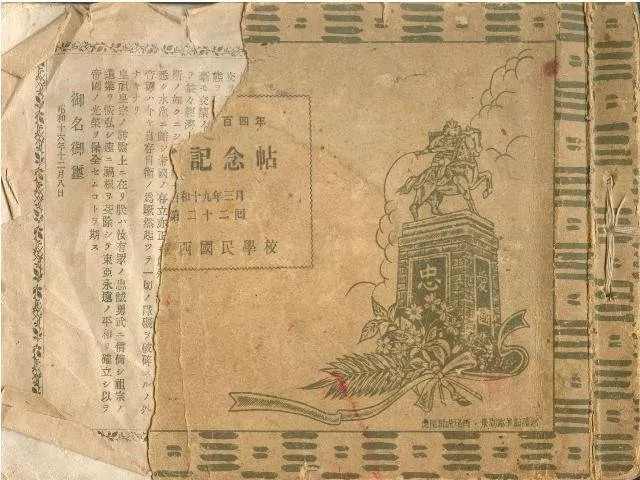 百四年
記念帖
和十九年三月
第二十二回
西國民學校
忠
毫モ交讓ノ
斯ノ如クニシ
悉ク水泡ニ歸シ帝國ノ存立亦正
帝國ハ今ヤ自存自衞ノ爲蹶然起ツテ一切ノ障礙ヲ破碎スルノ外
ナキナリ
皇祖皇宗ノ神靈上ニ在リ朕ハ汝有衆ノ忠誠勇武ニ信倚シ祖宗ノ
遺業ヲ恢弘シ速ニ禍根ヲ芟除シテ東亞永遠ノ平和ヲ確立シ以テ
帝國ノ光榮ヲ保全セムコトヲ期ス
御名御璽
昭和十六年十二月八日